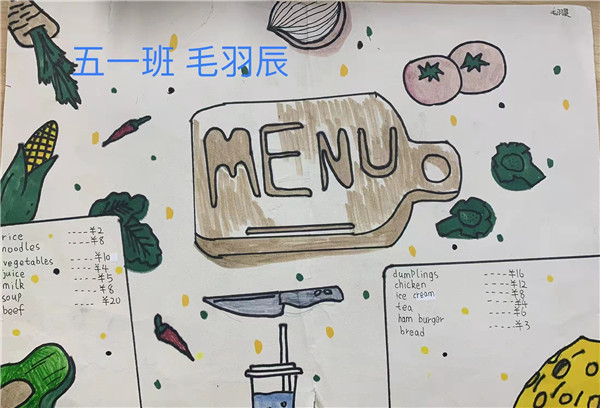 五一班 毛羽辰
MENU
rice ----¥2
noodles ----¥8
vegetables ----¥10
juice ----¥4
milk ----¥5
soup ----¥8
beef ---- ¥20
dumplings -----¥16
chicken -----¥12
ice cream -----¥8
tea -----¥4
ham burger -----¥6
bread ----¥3